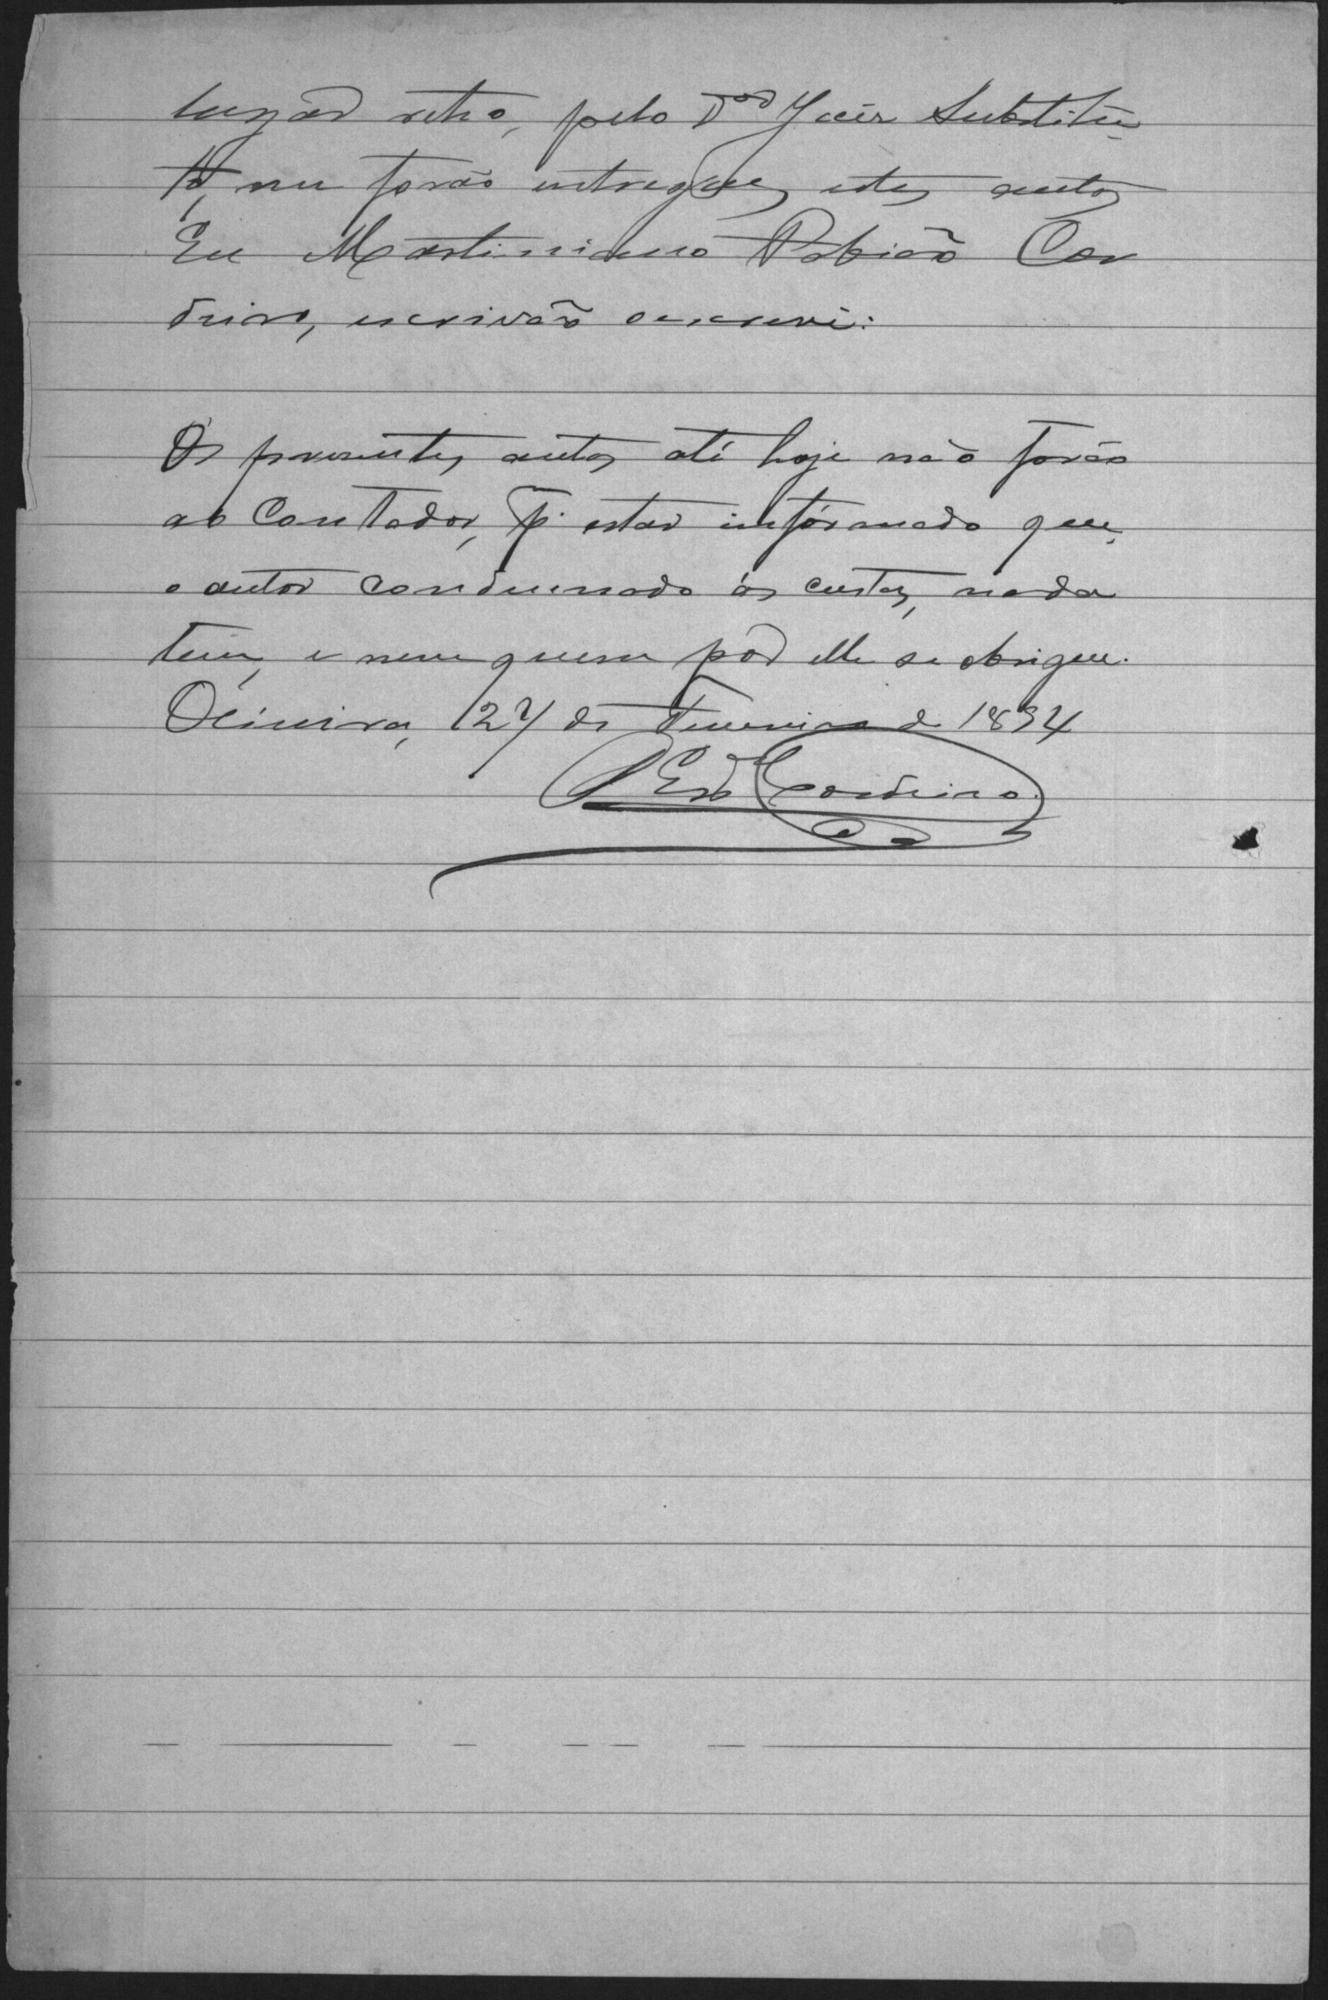 lugar retro, pelo Dor Juiz Substitu-
to, me forão entregues estes autos
Eu Martiniano Cor
deiro, escrivão o escrevi:
Os presentes autos até hoje não forão
ao Contador, p. estar informado que,
o autor condemnado ás custas, nada
tem, e nem quem por elle se obrigue.
Oliveira, 27 de Fevereiro de 1894
Cordeiro